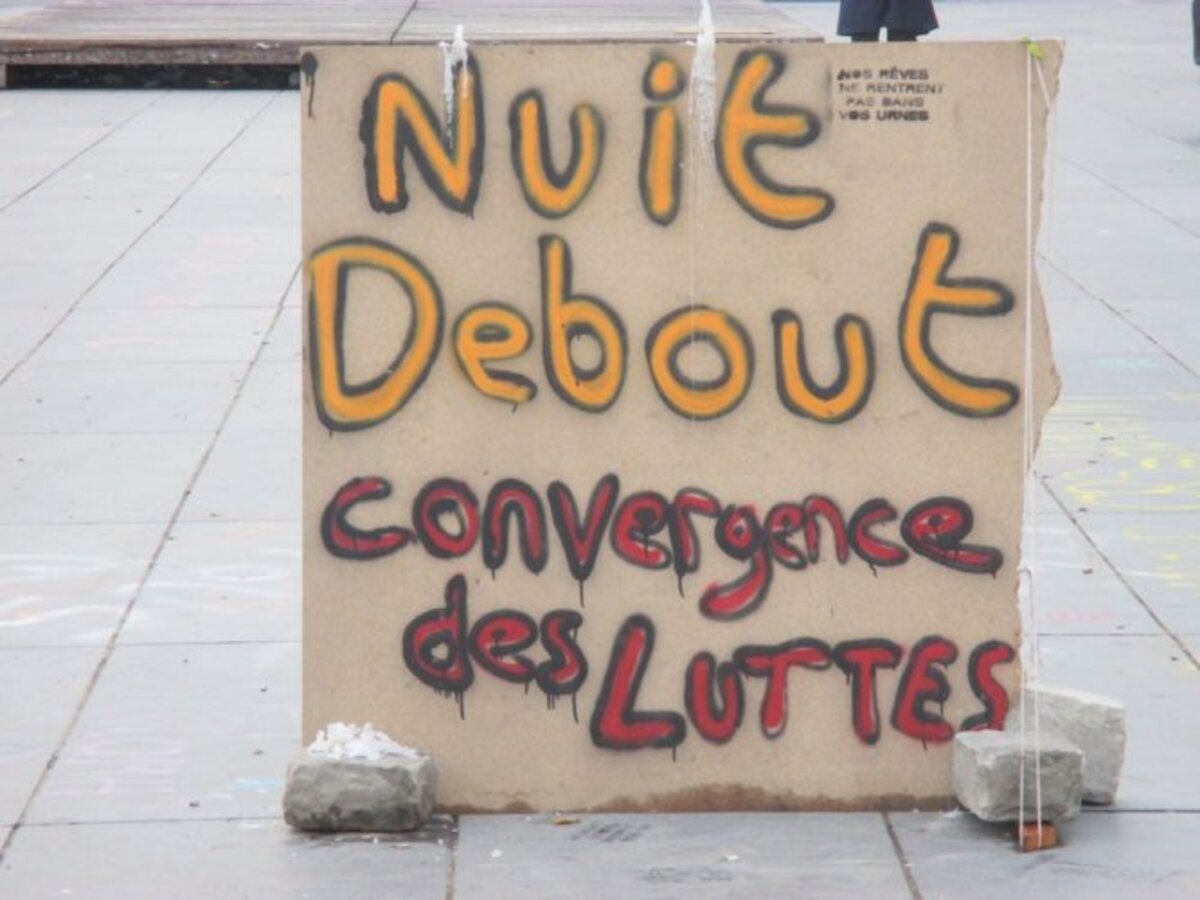 Nuit
NOS RÊVES
NE RENTRENT
PAS DANS
VOS URNES
Debout
convergence
des LUTTES